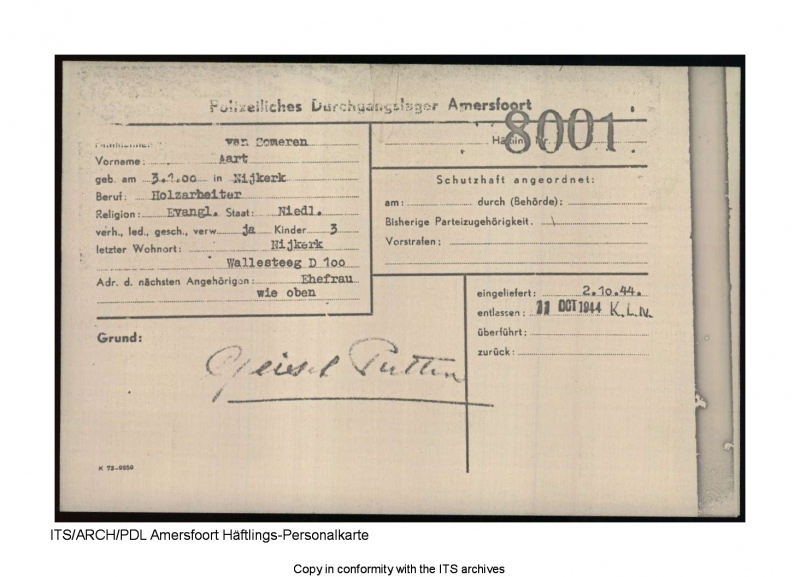 Polizeiliches Durchgangslager Amersfoort
Häftling Nr. 8001.
Familienname: van Someren
Vorname: Aart
geb. am 3.1.00 in Nijkerk
Beruf: Holzarbeiter
Religion: Evangl. Staat: Niedl.
verh., led., gesch., verw. ja Kinder 3
letzter Wohnort: Nijkerk
Wallesteeg D 100
Adr. d. nächsten Angehörigen: Ehefrau
wie oben
Schutzhaft angeordnet:
am: durch (Behörde):
Bisherige Parteizugehörigkeit. \
Vorstrafen:
eingeliefert: 2.10.44.
entlassen: 11 OCT 1944 K.L.N.
überführt:
zurück:
Grund:
Geisel Putten
K 72-0050
ITS/ARCH/PDL Amersfoort Häftlings-Personalkarte
Copy in conformity with the ITS archives